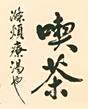 喫茶
滌煩療渇也